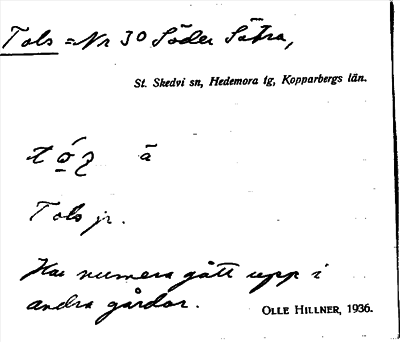 Tols = Nr 30 Söder Sätra,
St. Skedvi sn, Hedemora tg, Kopparbergs län.
ä
Tols jr.
Har numera gått upp i
andra gårdar.
OLLE HILLNER, 1936.